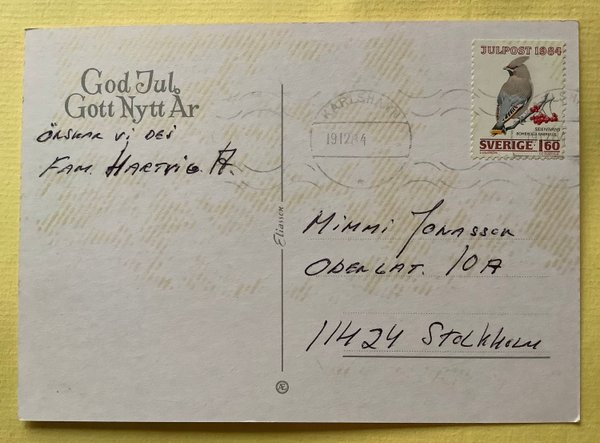 God Jul
Gott Nytt År
ÖNSKAR VI DEJ
FAM. HARTVIG A.
Eliasson
Æ
KARLSHAMN
191284
JULPOST 1984
SIDENSVANS
BOMBYCILLA GARRULUS
SVERIGE 1.60
MIMMI JONASSON
ODENGAT. 10A
11424 STOCKHOLM